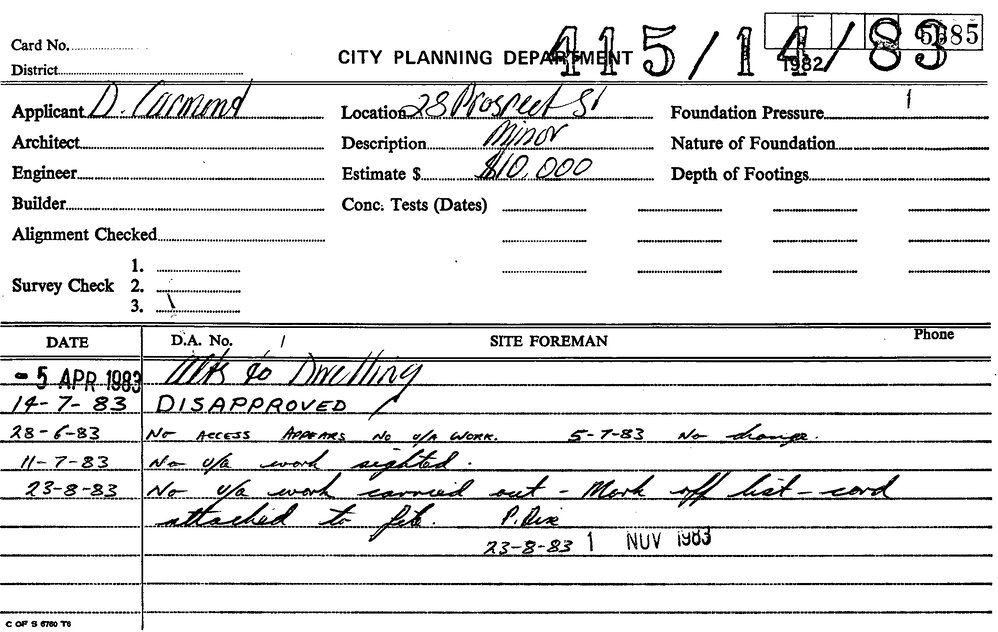 Card No.
CITY PLANNING DEPARTMENT
415/14/83
5685
1982
District
Applicant D. Carmond Location 28 Prospect St Foundation Pressure
Architect Description Minor Nature of Foundation
Engineer Estimate $ $10,000 Depth of Footings
Builder Conc. Tests (Dates)
Alignment Checked
1.
Survey Check 2.
3.
DATE D.A. No. SITE FOREMAN Phone
-5 APR 1983 Alts to Dwelling
14-7-83 DISAPPROVED
28-6-83 No ACCESS APPEARS No U/A WORK. 5-7-83 No change.
11-7-83 No U/a work sighted.
23-8-83 No U/a work carried out - Mark off list - card
attached to file. P.
23-8-83 1 NOV 1983
C OF S 6760 T6